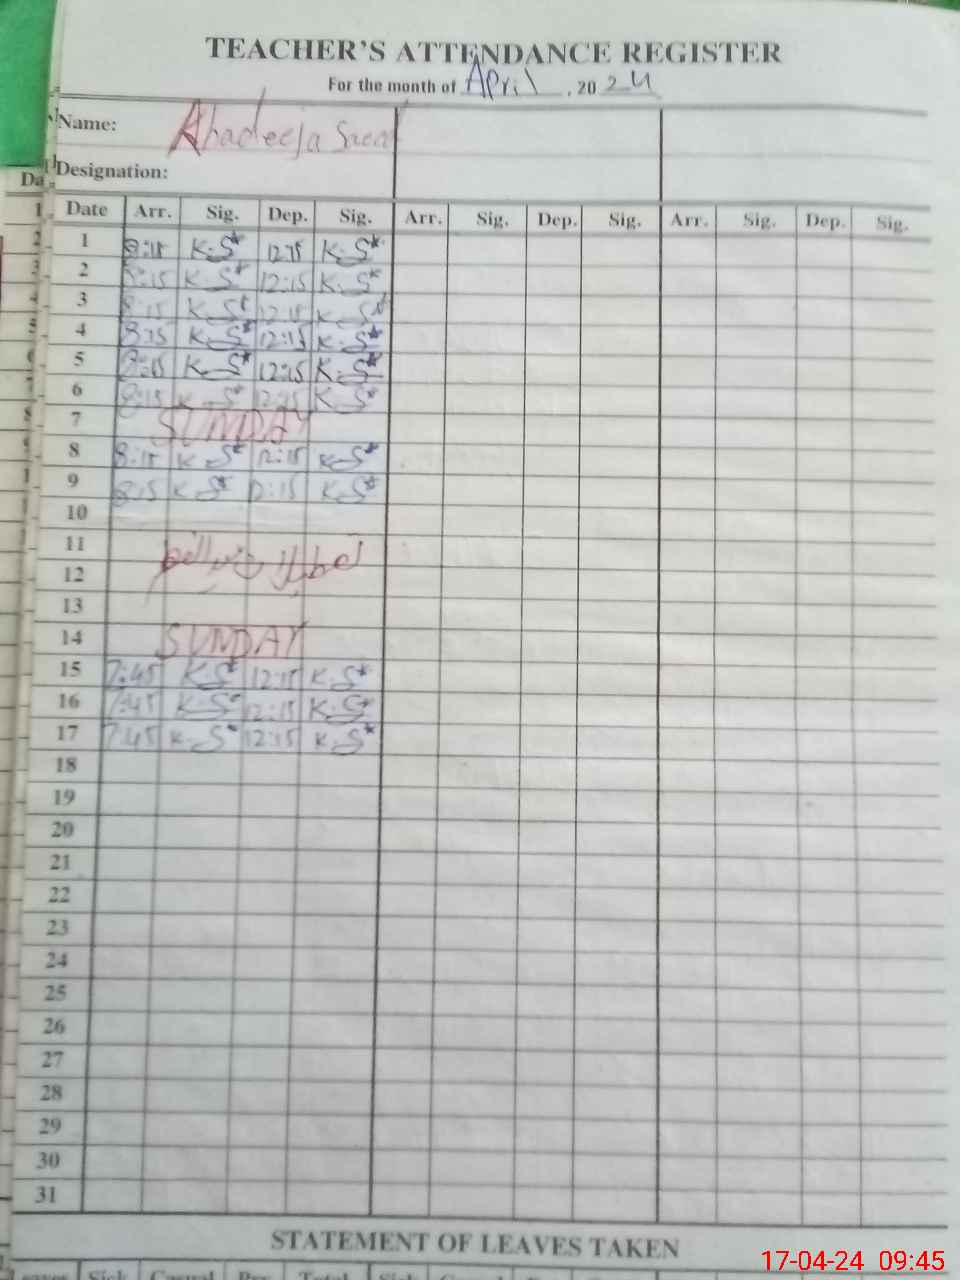 TEACHER'S ATTENDANCE REGISTER
For the month of April, 2024
Name: Khadeeja Saeed
Designation:
Date Arr. Sig. Dep. Sig. Arr. Sig. Dep. Sig. Arr. Sig. Dep. Sig.
1 8:15 K.S* 12:15 K.S*
2 8:15 K.S* 12:15 K.S*
3 8:15 K.S* 12:15 K.S*
4 8:15 K.S* 12:15 K.S*
5 8:15 K.S* 12:15 K.S*
6 8:15 K.S* 12:15 K.S*
7 SUNDAY
8 8:15 K.S* 12:15 K.S*
9 8:15 K.S* 12:15 K.S*
10
11
12
13
14 SUNDAY
15 7:45 K.S* 12:15 K.S*
16 7:45 K.S* 12:15 K.S*
17 7:45 K.S* 12:15 K.S*
18
19
20
21
22
23
24
25
26
27
28
29
30
31
STATEMENT OF LEAVES TAKEN
17-04-24 09:45